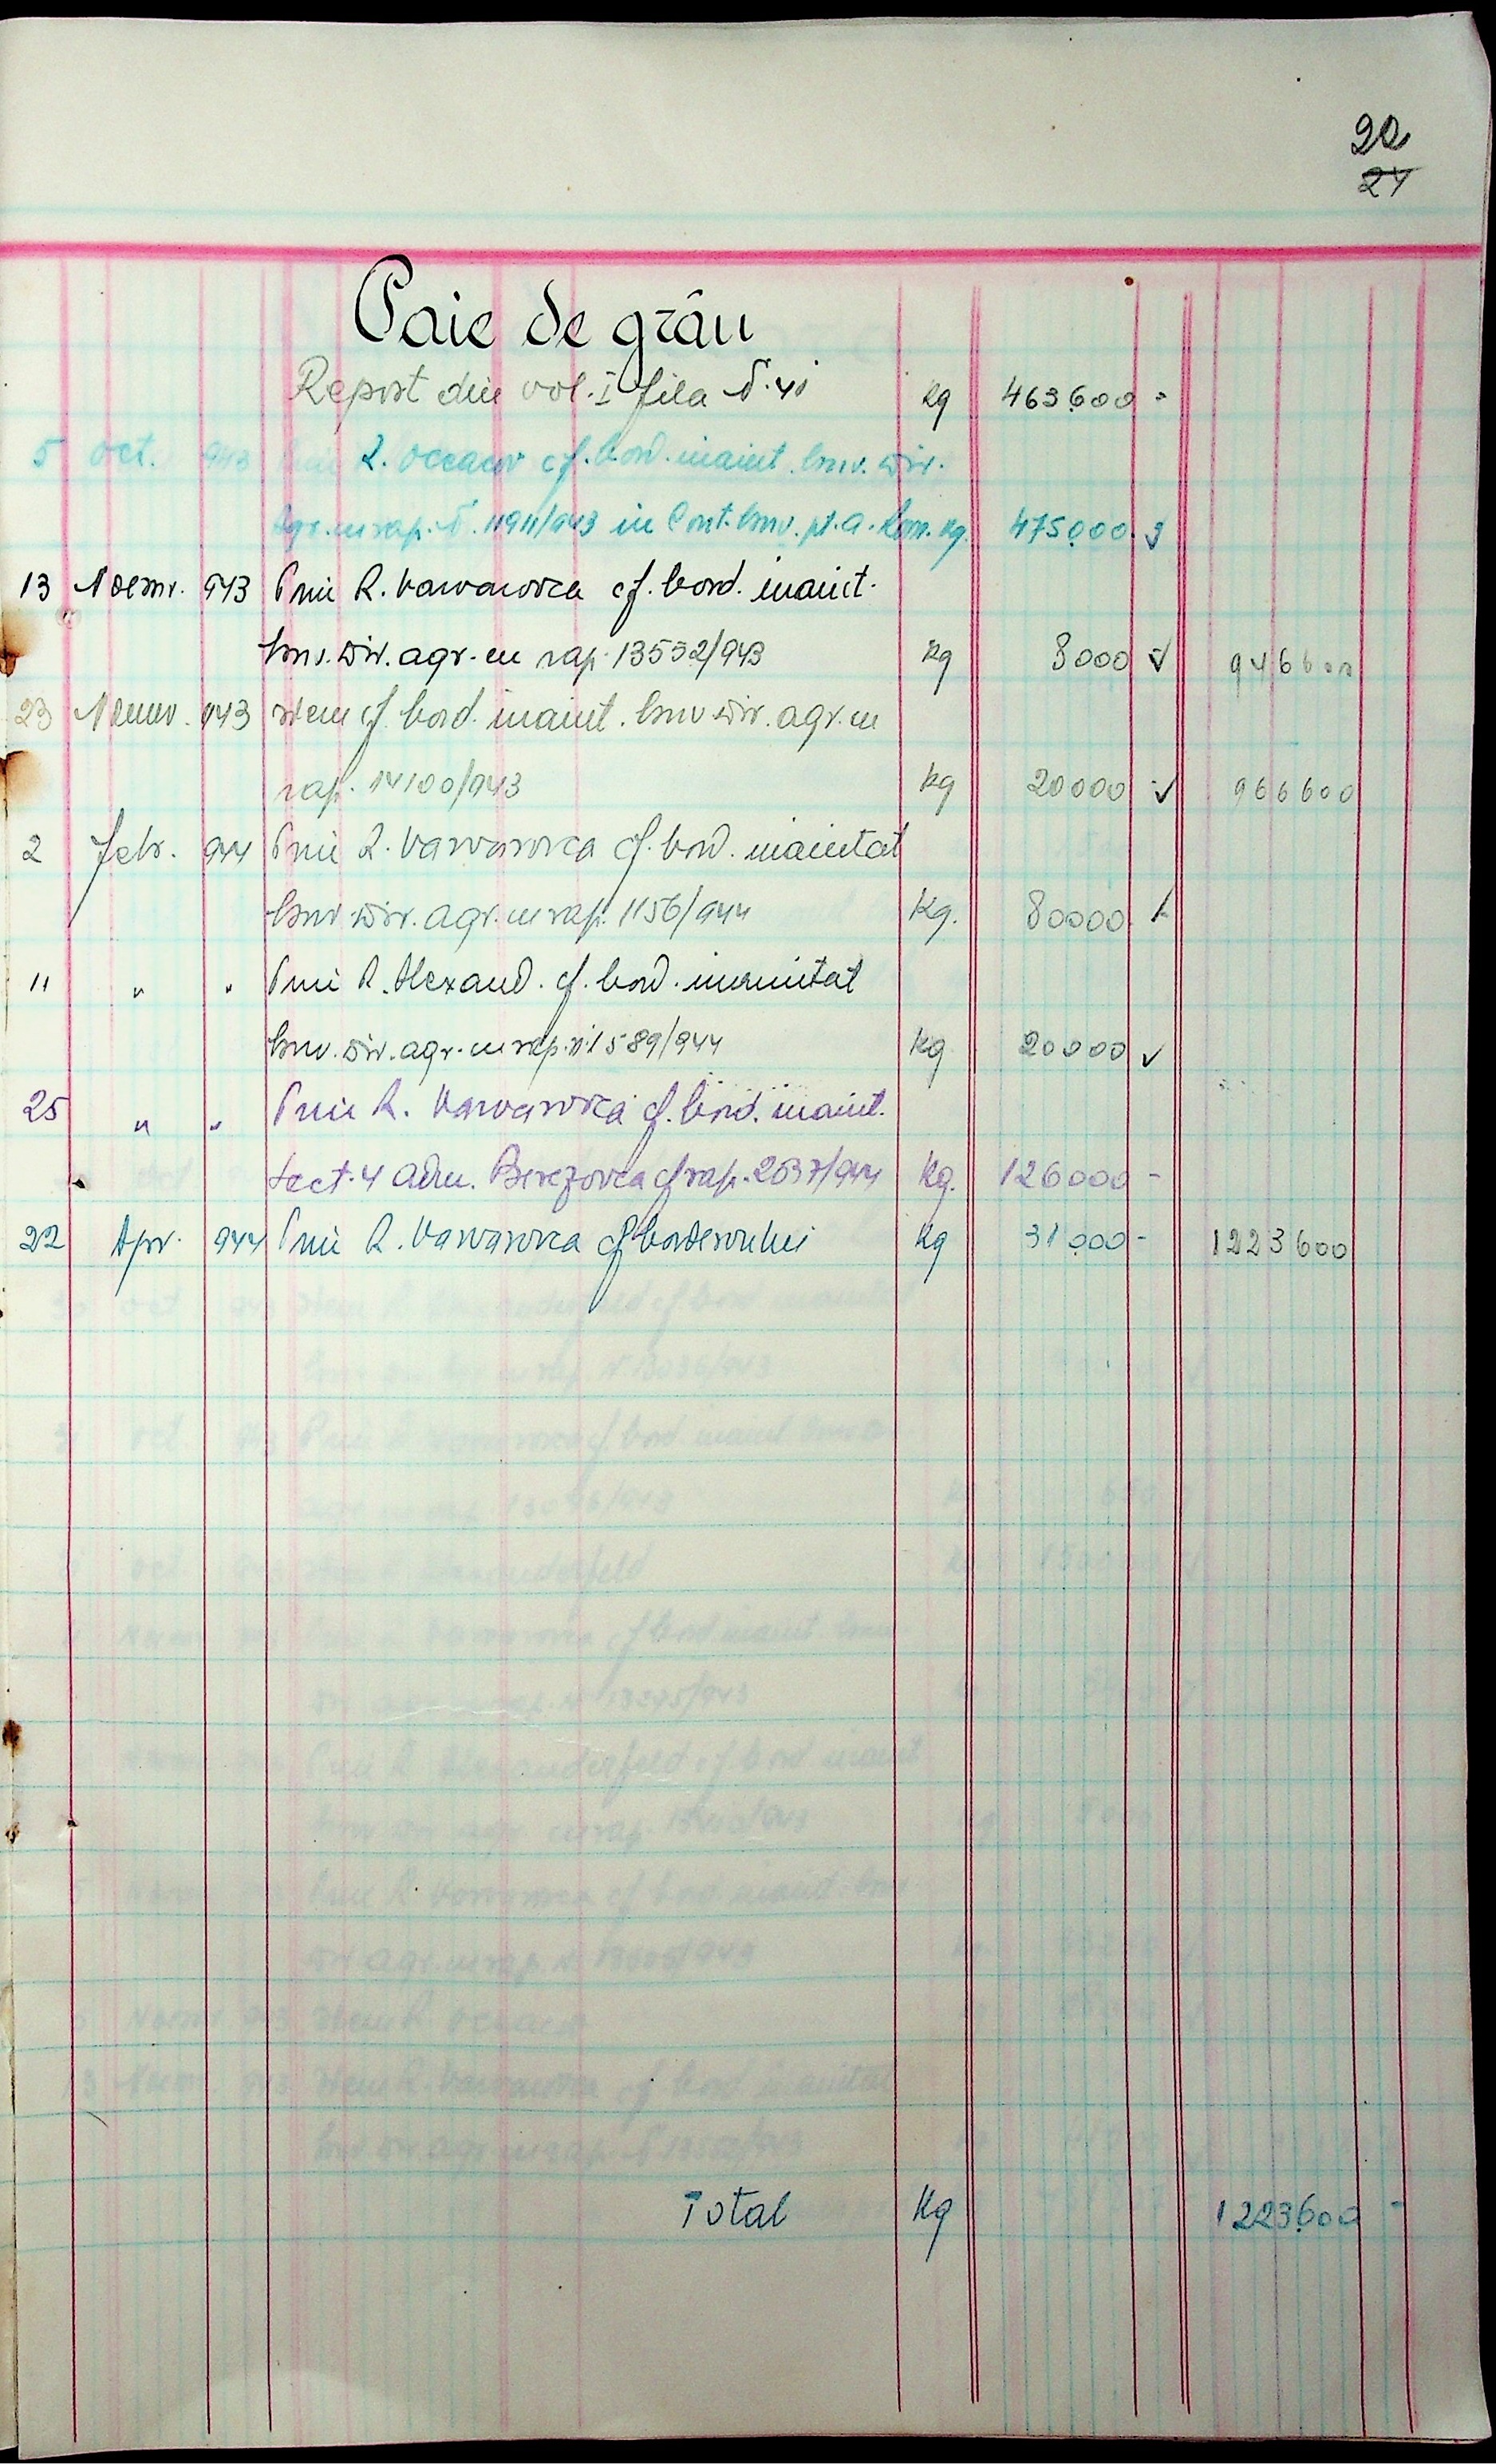 20
24
Paie de grâu
Report din vol. I fila № 41 kg 463600 -
5 oct. 943 Prin R. Oceacov cf. bord. inaint. Guv. Dir.
Agr. cu rap. № 11911/943 in Cont. Guv. pt. a. Rom. kg. 475000
13 Noemv. 943 Prin R. Varvarovca cf. bord. inaint.
Guv. Dir. agr. cu rap. 13532/943 kg 8000 946600
23 Noemv. 943 Idem cf. bord. inaint. Guv. Dir. agr. cu
rap. 14100/943 kg 20000 966600
2 Febr. 944 Prin R. Varvarovca cf. bord. inaintat
Guv. Dir. agr. cu rap. 1156/944 Kg. 80000
11 " " Prin R. Alexand. cf. bord. inaintat
Guv. Dir. agr. cu rap. № 1589/944 Kg 20000
25 " " Prin R. Varvarovca cf. bord. inaint.
Sect. 4 Adm. Berezovca cf rap. 2637/944 Kg. 126000 -
22 Apr. 944 Prin R. Varvarovca cf borderoului Kg 31000 - 1223600
Total Kg 1223600 -